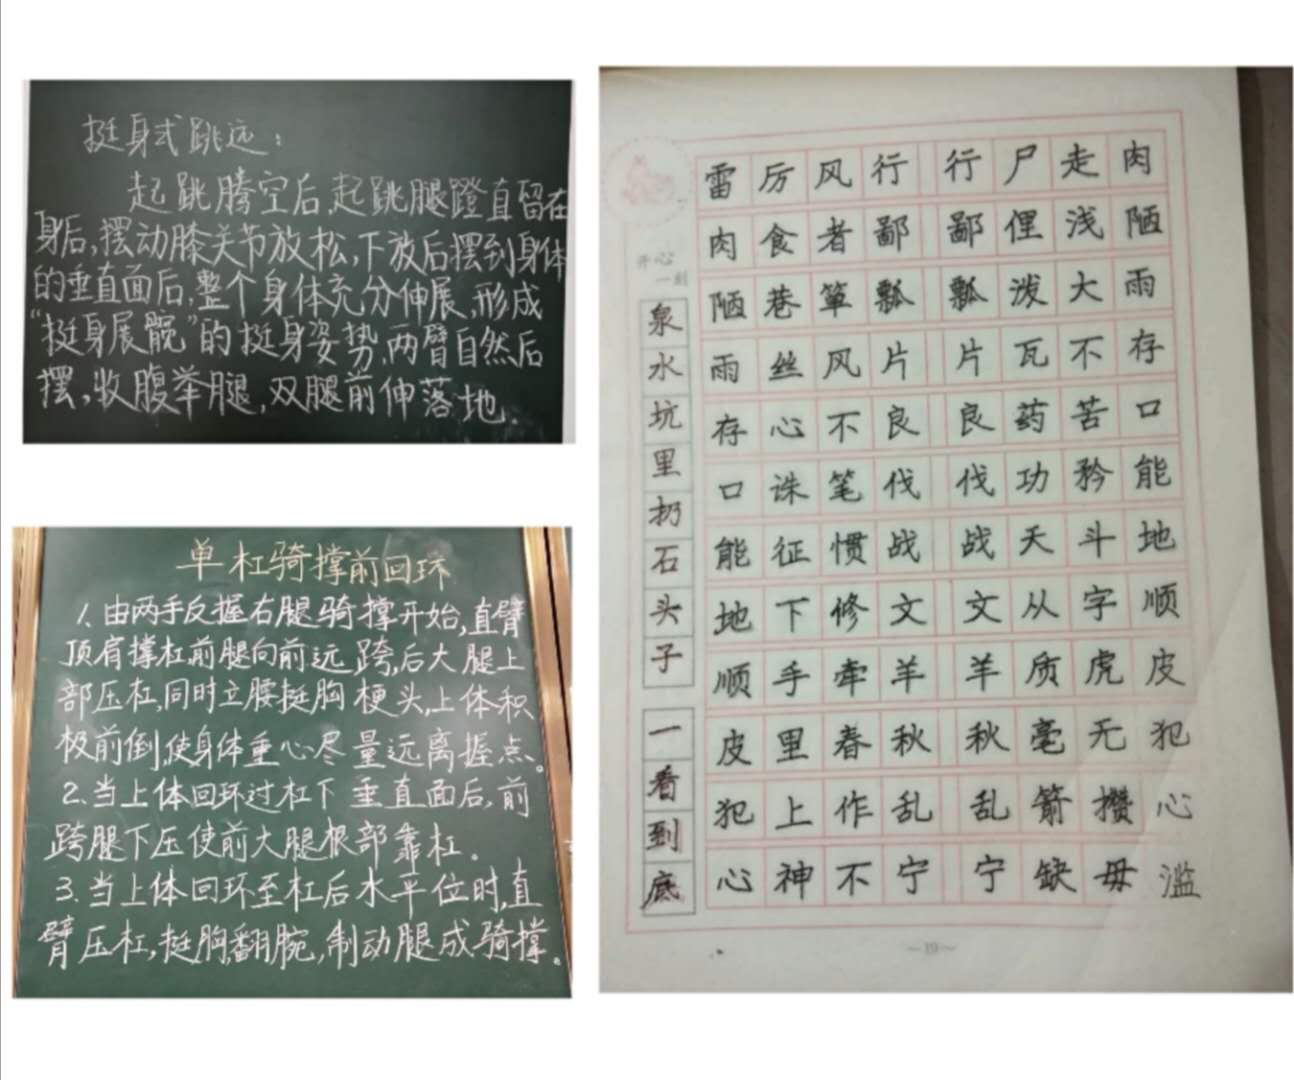 挺身式跳远：
起跳腾空后,起跳腿蹬直留在
身后,摆动膝关节放松,下放后摆到身体
的垂直面后,整个身体充分伸展,形成
“挺身展髋”的挺身姿势,两臂自然后
摆,收腹举腿,双腿前伸落地.
单杠骑撑前回环
1.由两手反握右腿骑撑开始,直臂
顶肩撑杠前腿向前远跨,后大腿上
部压杠,同时立腰挺胸梗头,上体积
极前倒,使身体重心尽量远离握点。
2.当上体回环过杠下垂直面后,前
跨腿下压使前大腿根部靠杠。
3.当上体回环至杠后水平位时,直
臂压杠,挺胸翻腕,制动腿成骑撑。
开心
一刻
泉水坑里扔石头子
一看到底
雷厉风行行尸走肉
肉食者鄙鄙俚浅陋
陋巷箪瓢瓢泼大雨
雨丝风片片瓦不存
存心不良良药苦口
口诛笔伐伐功矜能
能征惯战战天斗地
地下修文文从字顺
顺手牵羊羊质虎皮
皮里春秋秋毫无犯
犯上作乱乱箭攒心
心神不宁宁缺毋滥
~19~